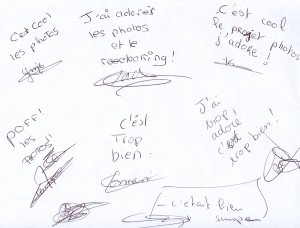 C'est cool
les photos
J'ai adorés
les photos
et le
!
C'est cool
le projet photos
j'adore !
POFF!
les
PHOTOS"
C'est
Trop
bien.
J'ai
trop
adoré
c'est
trop bien !
- c'était bien